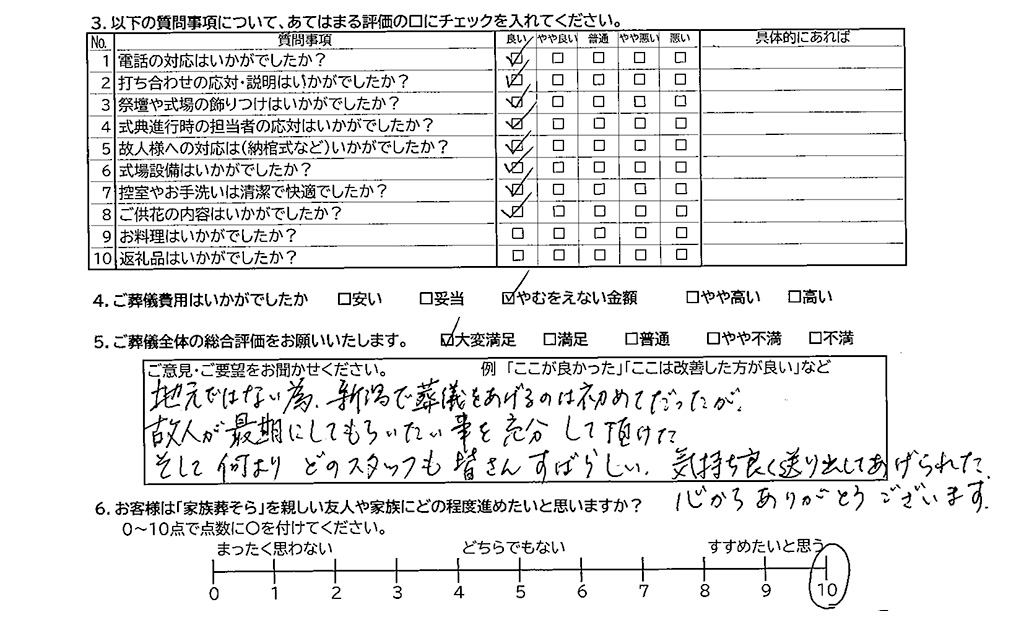 3. 以下の質問事項について、あてはまる評価の口にチェックを入れてください。
No. 質問事項 良い やや良い 普通 やや悪い 悪い 具体的にあれば
1 電話の対応はいかがでしたか? ☑ □ □ □ □
2 打ち合わせの応対・説明はいかがでしたか? ☑ □ □ □ □
3 祭壇や式場の飾りつけはいかがでしたか? ☑ □ □ □ □
4 式典進行時の担当者の応対はいかがでしたか? ☑ □ □ □ □
5 故人様への対応は(納棺式など)いかがでしたか? ☑ □ □ □ □
6 式場設備はいかがでしたか? ☑ □ □ □ □
7 控室やお手洗いは清潔で快適でしたか? ☑ □ □ □ □
8 ご供花の内容はいかがでしたか? ☑ □ □ □ □
9 お料理はいかがでしたか? □ □ □ □ □
10 返礼品はいかがでしたか? □ □ □ □ □
4. ご葬儀費用はいかがでしたか □安い □妥当 ☑やむをえない金額 □やや高い □高い
5. ご葬儀全体の総合評価をお願いいたします。 ☑大変満足 □満足 □普通 □やや不満 □不満
ご意見・ご要望をお聞かせください。 例 「ここが良かった」「ここは改善した方が良い」など
地元ではない為、新潟で葬儀をあげるのは初めてだったが、
故人が最期にしてもらいたい事を充分して頂けた
そして何よりどのスタッフも皆さんすばらしい、気持ち良く送り出してあげられた、
心からありがとうございます。
6. お客様は「家族葬そら」を親しい友人や家族にどの程度進めたいと思いますか?
0〜10点で点数に〇を付けてください。
まったく思わない どちらでもない すすめたいと思う
0 1 2 3 4 5 6 7 8 9 10